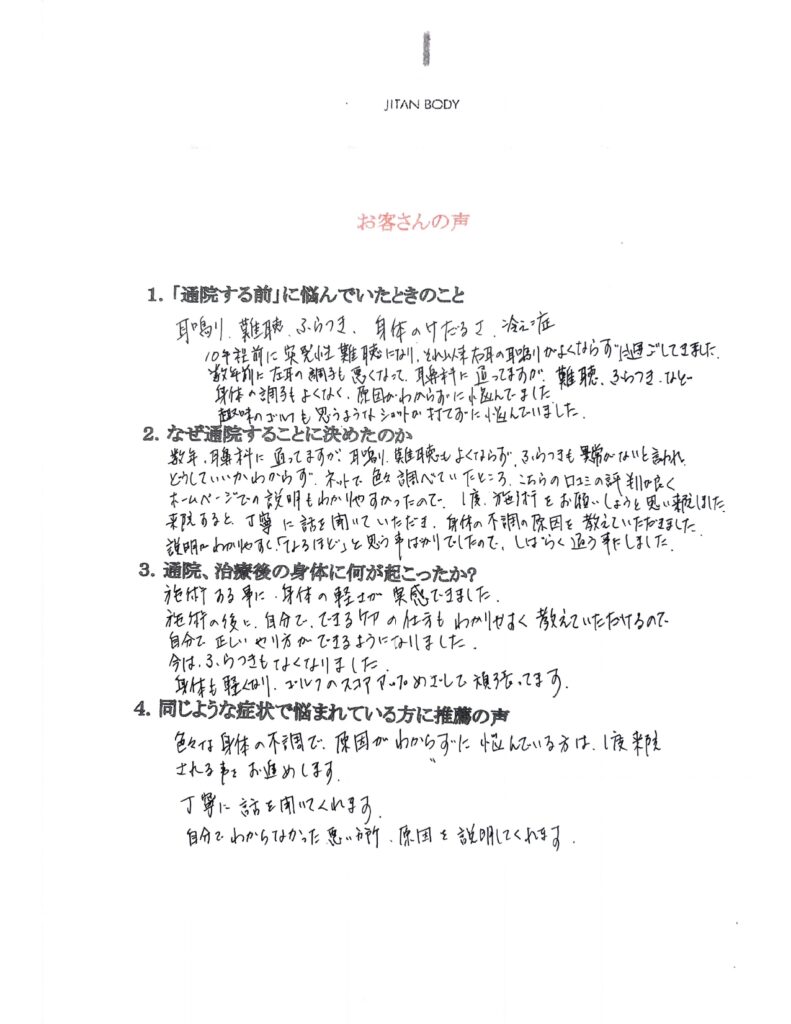 JITAN BODY
お客さんの声
1. 「通院する前」に悩んでいたときのこと
耳鳴り、難聴、ふらつき、身体のけだるさ、冷え症
10年程前に突発性難聴になり、それ以来右耳の耳鳴りがよくならずに過ごしてきました。
数年前に左耳の調子も悪くなって、耳鼻科に通ってますが、難聴、ふらつき、ひどく
身体の調子もよくなく、原因がわからずに悩んでました。
趣味のゴルフも思うようなショットが打てずに悩んでいました。
2. なぜ通院することに決めたのか
数年、耳鼻科に通ってますが、耳鳴り、難聴もよくならず、ふらつきも異常がないと言われ
どうしていいかわからず、ネットで色々調べていたところ、こちらの口コミの評判が良く
ホームページでの説明もわかりやすかったので、1度、施術をお願いしようと思い来院しました。
来院すると、丁寧に話を聞いていただき、身体の不調の原因を教えていただきました。
説明がわかりやすく、「なるほど」と思う事ばかりでしたので、しばらく通う事にしました。
3. 通院、治療後の身体に何が起こったか?
施術する事に、身体の軽さが実感できました。
施術の後に、自分で、できるケアの仕方もわかりやすく教えていただけるので
自分で正しいやり方ができるようになりました。
今は、ふらつきもなくなりました。
身体も軽くなり、ゴルフのスコアアップめざして頑張ってます。
4. 同じような症状で悩まれている方に推薦の声
色々な身体の不調で、原因がわからずに悩んでいる方は、1度来院
される事をお進めします。
丁寧に話を聞いてくれます。
自分でわからなかった悪い所、原因を説明してくれます。